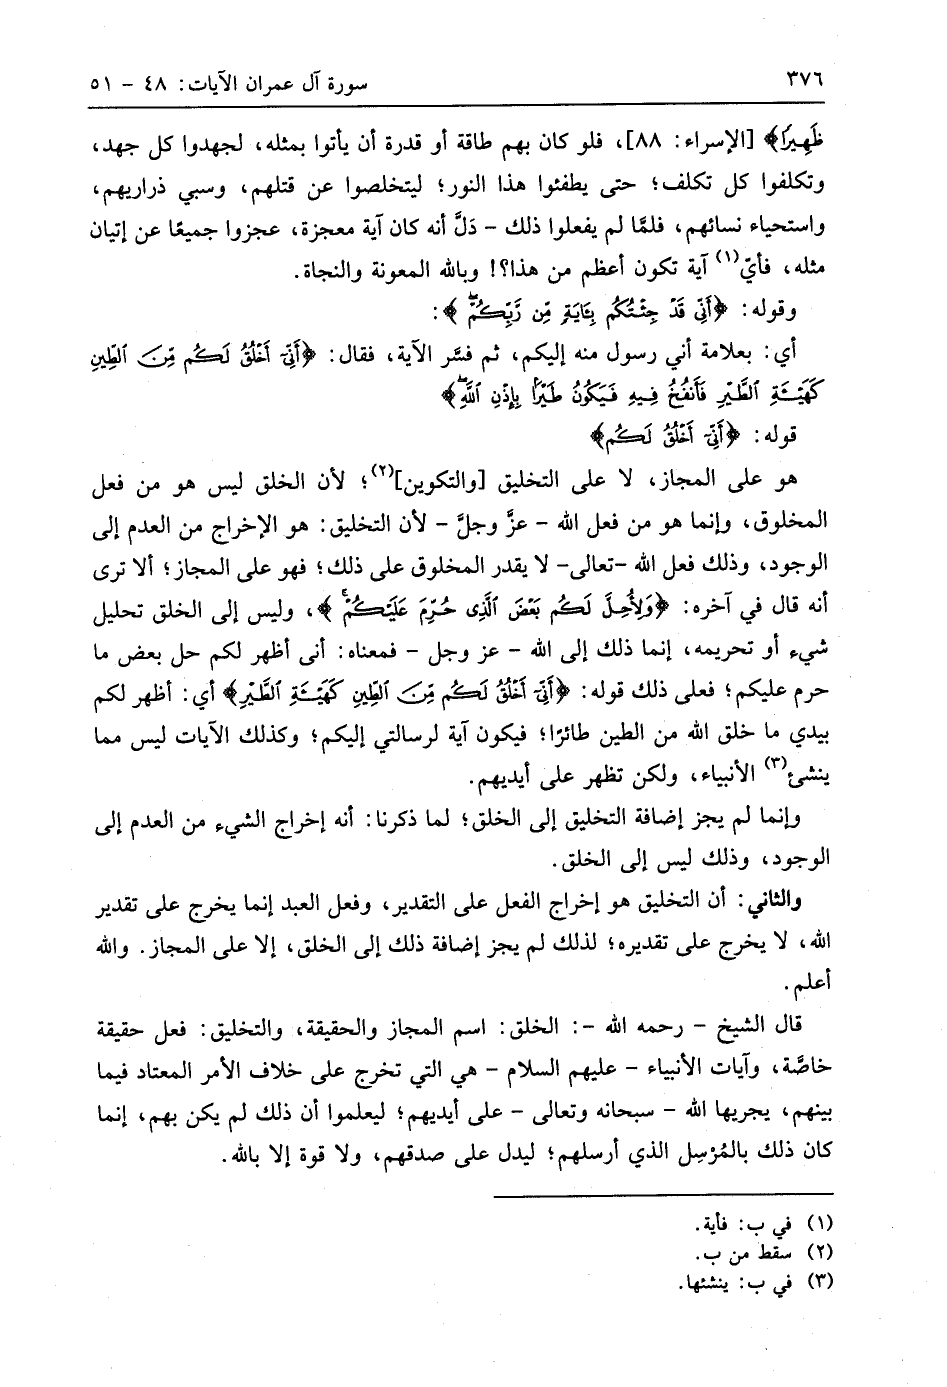 ٣٧٦
سورة آل عمران الآيات: ٤٨ – ٥١
ظَهِيرًا﴾ [الإسراء: ٨٨]، فلو كان بهم طاقة أو قدرة أن يأتوا بمثله، لجهدوا كل جهد،
وتكلفوا كل تكلف؛ حتى يطفئوا هذا النور؛ ليتخلصوا عن قتلهم، وسبي ذراريهم،
واستحياء نسائهم، فلمَّا لم يفعلوا ذلك – دَلَّ أنه كان آية معجزة، عجزوا جميعًا عن إتيان
مثله، فأيّ(١) آية تكون أعظم من هذا؟! وبالله المعونة والنجاة.
وقوله: ﴿أَنِّي قَدْ جِئْتُكُم بِـَٔايَةٍ مِّن رَّبِّكُمْ﴾:
أي: بعلامة أني رسول منه إليكم، ثم فسَّر الآية، فقال: ﴿أَنِّيٓ أَخْلُقُ لَكُم مِّنَ ٱلطِّينِ
كَهَيْـَٔةِ ٱلطَّيْرِ فَأَنفُخُ فِيهِ فَيَكُونُ طَيْرًۢا بِإِذْنِ ٱللَّهِ﴾
قوله: ﴿أَنِّيٓ أَخْلُقُ لَكُم﴾
هو على المجاز، لا على التخليق [والتكوين](٢)؛ لأن الخلق ليس هو من فعل
المخلوق، وإنما هو من فعل الله – عزَّ وجلَّ – لأن التخليق: هو الإخراج من العدم إلى
الوجود، وذلك فعل الله –تعالى– لا يقدر المخلوق على ذلك؛ فهو على المجاز؛ ألا ترى
أنه قال في آخره: ﴿وَلِأُحِلَّ لَكُم بَعْضَ ٱلَّذِى حُرِّمَ عَلَيْكُمْ﴾، وليس إلى الخلق تحليل
شيء أو تحريمه، إنما ذلك إلى الله – عز وجل – فمعناه: أنى أظهر لكم حل بعض ما
حرم عليكم؛ فعلى ذلك قوله: ﴿أَنِّيٓ أَخْلُقُ لَكُم مِّنَ ٱلطِّينِ كَهَيْـَٔةِ ٱلطَّيْرِ﴾ أي: أظهر لكم
بيدي ما خلق الله من الطين طائرًا؛ فيكون آية لرسالتي إليكم؛ وكذلك الآيات ليس مما
ينشئ(٣) الأنبياء، ولكن تظهر على أيديهم.
وإنما لم يجز إضافة التخليق إلى الخلق؛ لما ذكرنا: أنه إخراج الشيء من العدم إلى
الوجود، وذلك ليس إلى الخلق.
والثاني: أن التخليق هو إخراج الفعل على التقدير، وفعل العبد إنما يخرج على تقدير
الله، لا يخرج على تقديره؛ لذلك لم يجز إضافة ذلك إلى الخلق، إلا على المجاز. والله
أعلم.
قال الشيخ – رحمه الله –: الخلق: اسم المجاز والحقيقة، والتخليق: فعل حقيقة
خاصَّة، وآيات الأنبياء – عليهم السلام – هي التي تخرج على خلاف الأمر المعتاد فيما
بينهم، يجريها الله – سبحانه وتعالى – على أيديهم؛ ليعلموا أن ذلك لم يكن بهم، إنما
كان ذلك بالمُرْسِل الذي أرسلهم؛ ليدل على صدقهم، ولا قوة إلا بالله.
(١) في ب: فأية.
(٢) سقط من ب.
(٣) في ب: ينشئها.